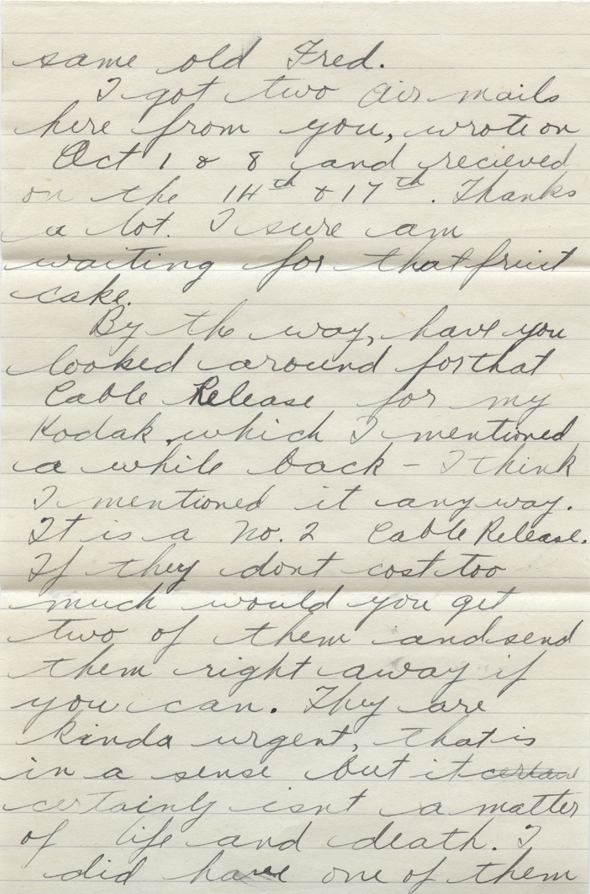 same old Fred.
I got two Air mails
here from you, wrote on
Oct 1 & 8 and recieved
on the 14th & 17th. Thanks
a lot. I sure am
waiting for that fruit
cake.
By the way, have you
looked around for that
Cable Release for my
Kodak, which I mentioned
a while back - I think
I mentioned it anyway.
It is a No. 2 Cable Release.
If they dont cost too
much would you get
two of them and send
them right away if
you can. They are
kinda urgent, that is
in a sense but it certain
certainly isnt a matter
of life and death. I
did have one of them